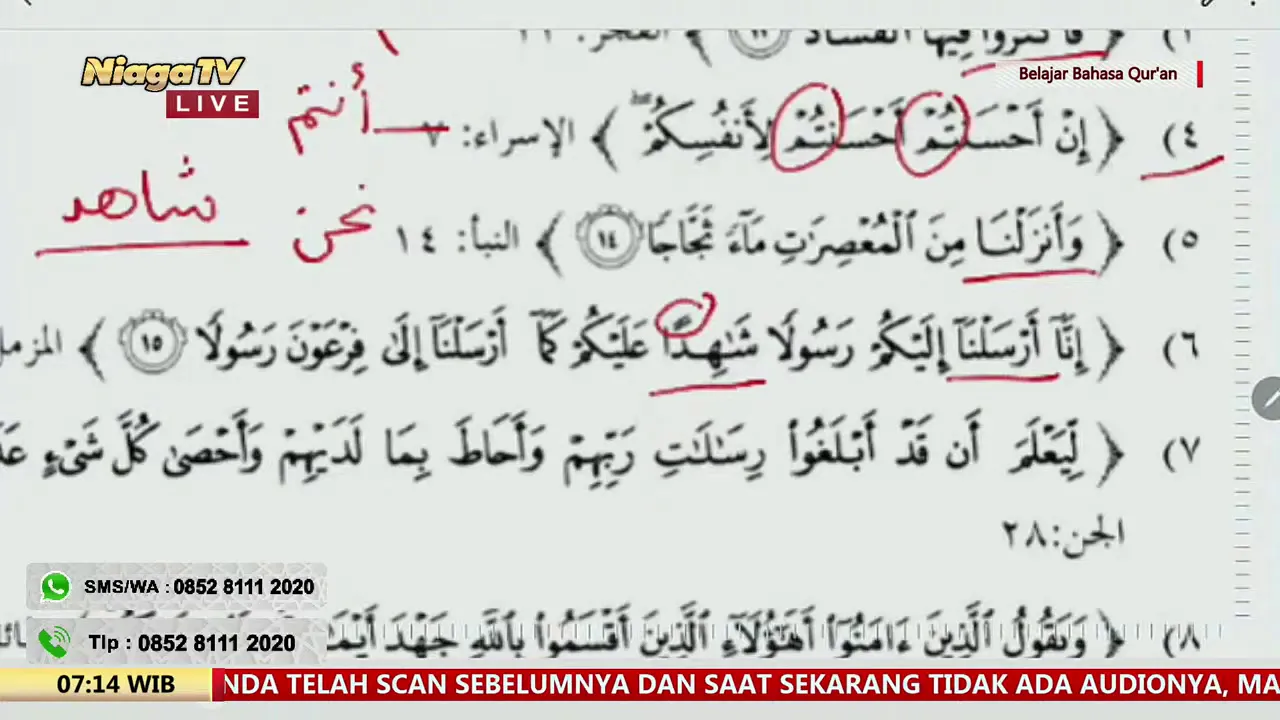 ٣) فَأَكْثَرُوا۟ فِيهَا ٱلْفَسَادَ ١٢ ﴾ الفجر: ١٢
NiagaTV
LIVE
Belajar Bahasa Qur'an
أنتم
٤) ﴿ إِنْ أَحْسَنتُمْ أَحْسَنتُمْ لِأَنفُسِكُمْ ۖ ﴾ الإسراء: ٧
شاهد
نحن
٥) ﴿ وَأَنزَلْنَا مِنَ ٱلْمُعْصِرَٰتِ مَآءً ثَجَّاجًا ١٤ ﴾ النبأ: ١٤
٦) ﴿ إِنَّآ أَرْسَلْنَآ إِلَيْكُمْ رَسُولًا شَٰهِدًا عَلَيْكُمْ كَمَآ أَرْسَلْنَآ إِلَىٰ فِرْعَوْنَ رَسُولًا ١٥ ﴾
٧) ﴿ لِّيَعْلَمَ أَن قَدْ أَبْلَغُوا۟ رِسَٰلَٰتِ رَبِّهِمْ وَأَحَاطَ بِمَا لَدَيْهِمْ وَأَحْصَىٰ كُلَّ شَىْءٍ
الجن: ٢٨
SMS/WA : 0852 8111 2020
٨) ﴿ وَيَقُولُ ٱلَّذِينَ ءَامَنُوٓا۟ أَهَٰٓؤُلَآءِ ٱلَّذِينَ أَقْسَمُوا۟ بِٱللَّهِ جَهْدَ
Tlp : 0852 8111 2020
07:14 WIB
NDA TELAH SCAN SEBELUMNYA DAN SAAT SEKARANG TIDAK ADA AUDIONYA, MA